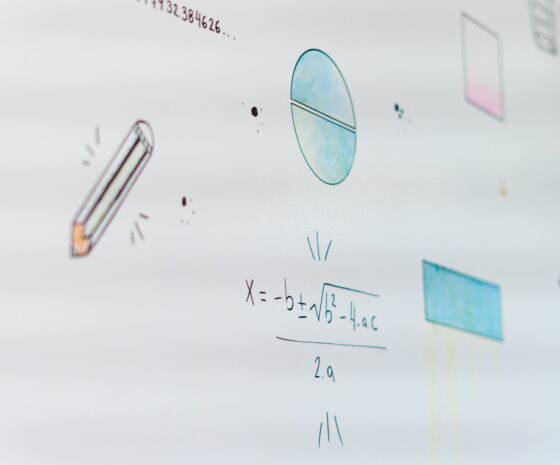 7932384626...
X = -b ± √b² - 4.ac
2.a